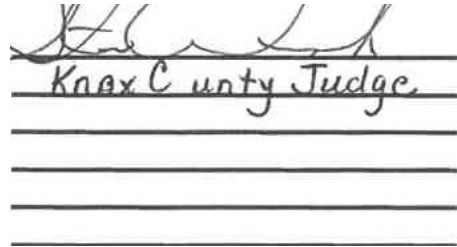 Knox C unty Judge